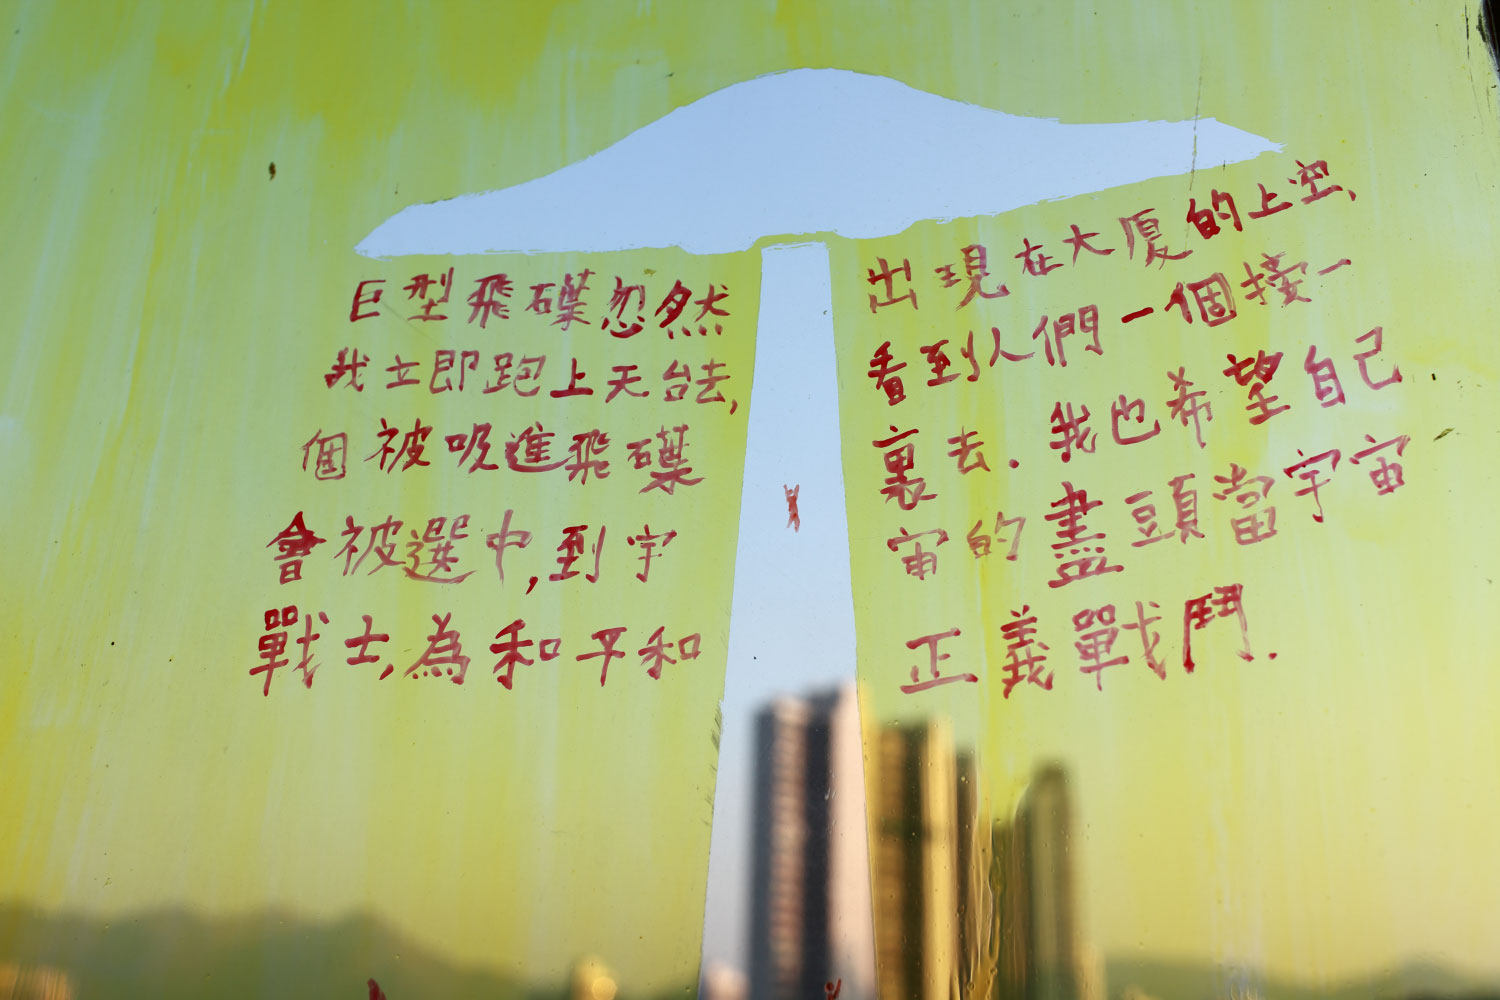 巨型飛碟忽然出現在大廈的上空,
我立即跑上天台去,看到人們一個接一
個被吸進飛碟裏去.我也希望自己
會被選中,到宇宙的盡頭當宇宙
戰士,為和平和正義戰鬥.